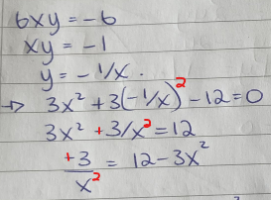 6xy = -6
xy = -1
y = - 1/x .
→ 3x² + 3(-1/x)² - 12 = 0
3x² + 3/x² = 12
+3/x² = 12 - 3x²